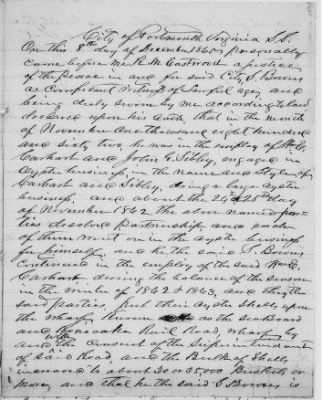 City of Portsmouth, Virginia S.S.
On this 8th day of December 1868 personally
came before me R. M. Eastwood a justice
of the peace in and for said City, S. Bowns
a Competent Witness of Lawful age, and
being duly sworn by me according to law
declares upon his oath, that in the month
of November One thousand eight hundred
and sixty two, he was in the employ of W. C.
Carhart and John G. Sibley, engaged in
Oyster business, in the name and style of
Carhart and Sibley, doing a large oyster
business, and about the 24 or 25th day
of November 1862 the above named par-
ties dissolved Partnership, and each
of them went on in the oyster business
for himself, and he the said S. Bowns
continued in the employ of the said W. C.
Carhart during the balance of the season
in the winter of 1862 & 1863, and they the
said parties, put their Oyster Shells upon
the wharf, known as the Sea Board
and Roanoake Rail Road, wharf, by
and with the consent of the Superintendent
of said Road, and the Bulk of Shells
in amount to about 30 or 35000 Bushels or
more, and that he the said S Bowns is